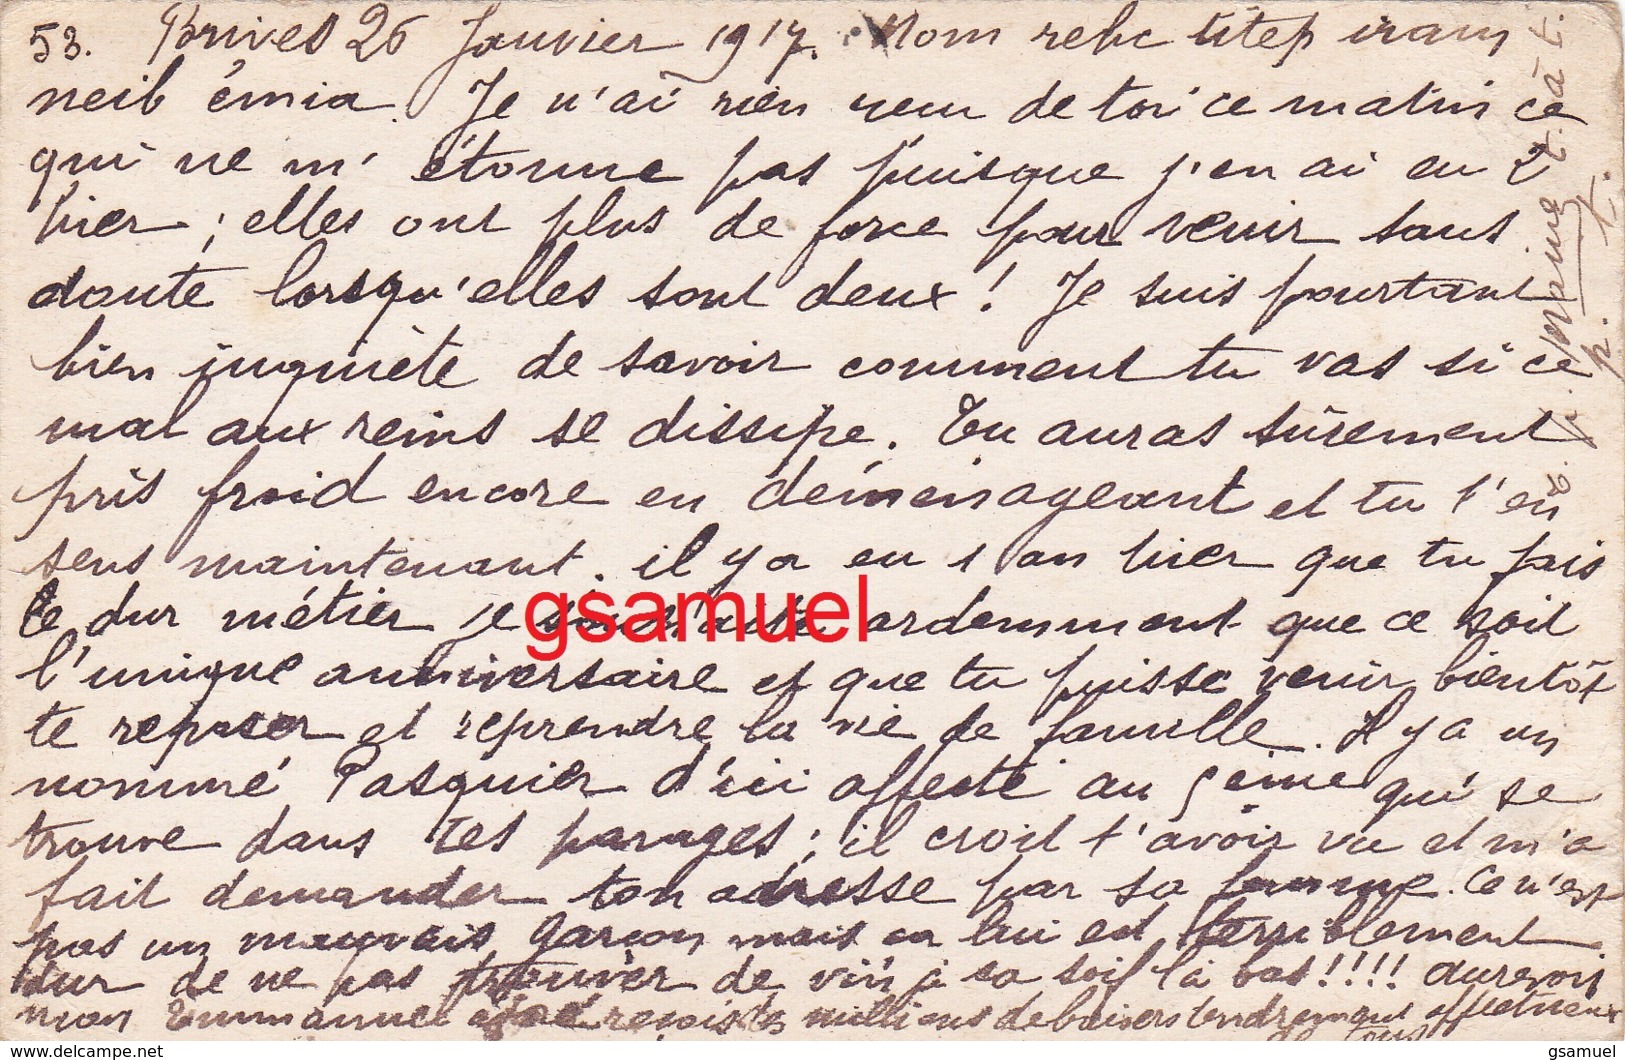 53. Brives 26 Janvier 1917. Mom rehc titep iram
neib émia. Je n'ai rien reçu de toi ce matin ce
qui ne m'étonne pas puisque j'en ai eu 2
hier ; elles ont plus de force pour venir sans
doute lorsqu'elles sont deux ! Je suis pourtant
bien inquiète de savoir comment tu vas si ce
mal aux reins se dissipe. Tu auras sûrement
pris froid encore en déménageant et tu t'en
sens maintenant. il y a eu 1 an hier que tu fais
le dur métier je ardemment que ce soit
gsamuel
l'unique anniversaire et que tu puisse venir bientôt
te reposer et reprendre la vie de famille. Il y a un
nommé Pasquier d'ici affecté au 5ème qui se
trouve dans tes parages ; il croit t'avoir vu et m'a
fait demander ton adresse par sa femme. Ce n'est
pas un mauvais garçon mais ça lui est terriblement
dur de ne pas trouver de vin à sa soif là bas !!!! aurevoir
mon Emmanuel reçois tes millions de baisers tendrement affectueux
de tous
t. à t.
p. t.
gsamuel